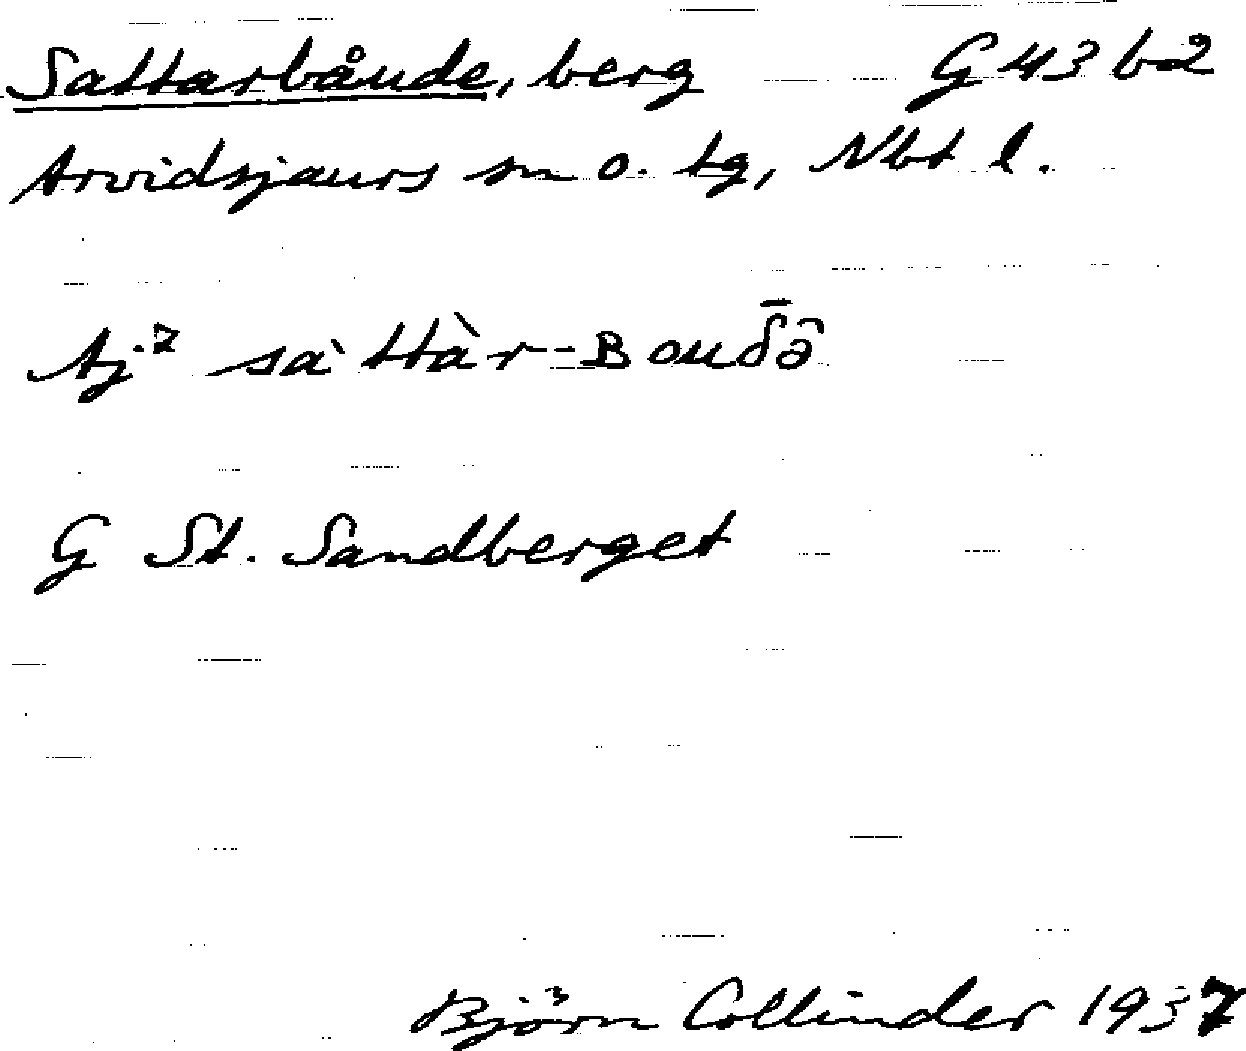 Sattarbåude, berg G 43 b2
Arvidsjaurs sn o. tg, Nbt l.
Aj.7 sà ttàr-Bouδ̄ə̑
G St. Sandberget
Björn Collinder 1937